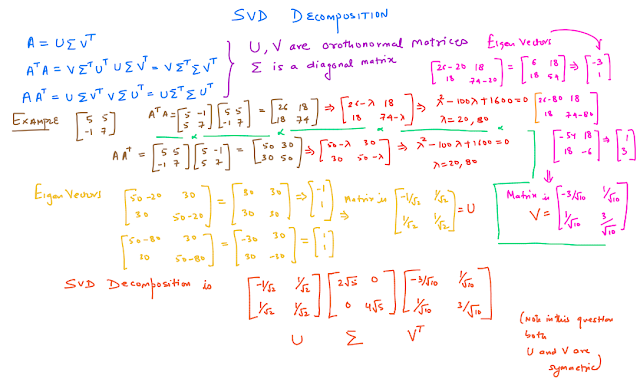 SVD DECOMPOSITION
A = UΣV^T
A^T A = VΣ^T U^T UΣV^T = VΣ^T ΣV^T
A A^T = UΣV^T VΣU^T = UΣ^T ΣU^T
U, V are orothonormal matrices
Σ is a diagonal matrix
Eigen Vectors
[26-20 18; 18 74-20] = [6 18; 18 54] ⇒ [-3; 1]
EXAMPLE [5 5; -1 7]
A^T A = [5 -1; 5 7] [5 5; -1 7] = [26 18; 18 74] ⇒ [26-λ 18; 18 74-λ] ⇒ λ²-100λ+1600=0
λ=20, 80
[26-80 18; 18 74-80]
[-54 18; 18 -6] ⇒ [1; 3]
AA^T = [5 5; -1 7] [5 -1; 5 7] = [50 30; 30 50] ⇒ [50-λ 30; 30 50-λ] ⇒ λ²-100λ+1600=0
λ=20, 80
Matrix is
V = [-3/√10 1/√10; 1/√10 3/√10]
Eigen Vectors [50-20 30; 30 50-20] = [30 30; 30 30] ⇒ [-1; 1]
⇒ Matrix is [-1/√2 1/√2; 1/√2 1/√2] = U
[50-80 30; 30 50-80] = [-30 30; 30 -30] = [1; 1]
SVD Decomposition is [-1/√2 1/√2; 1/√2 1/√2] [2√5 0; 0 4√5] [-3/√10 1/√10; 1/√10 3/√10]
U Σ V^T
(Note in this question
both
U and V are
symmetric)